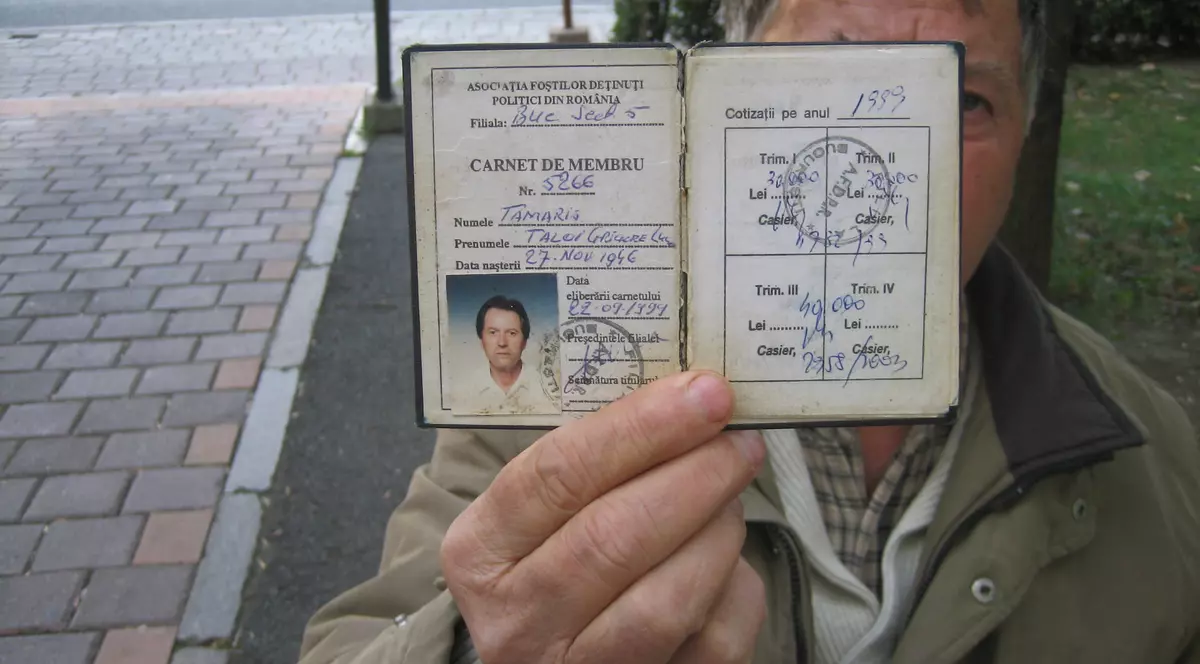 ASOCIAȚIA FOȘTILOR DEȚINUȚI
POLITICI DIN ROMÂNIA
Filiala: Buc Sect 5
CARNET DE MEMBRU
Nr. 5266
Numele TAMARIS
Prenumele
Data nașterii 27. NOV 1946
Data
eliberării carnetului
22-09-1994
Președintele filialei
Semnătura titularului
Cotizații pe anul 1999
Trim. I Trim. II
30.000 30.000
Lei ......... Lei .........
Casier, Casier,
Trim. III Trim. IV
40.000
Lei ......... Lei .........
Casier, Casier,
A.F.D.P.R.